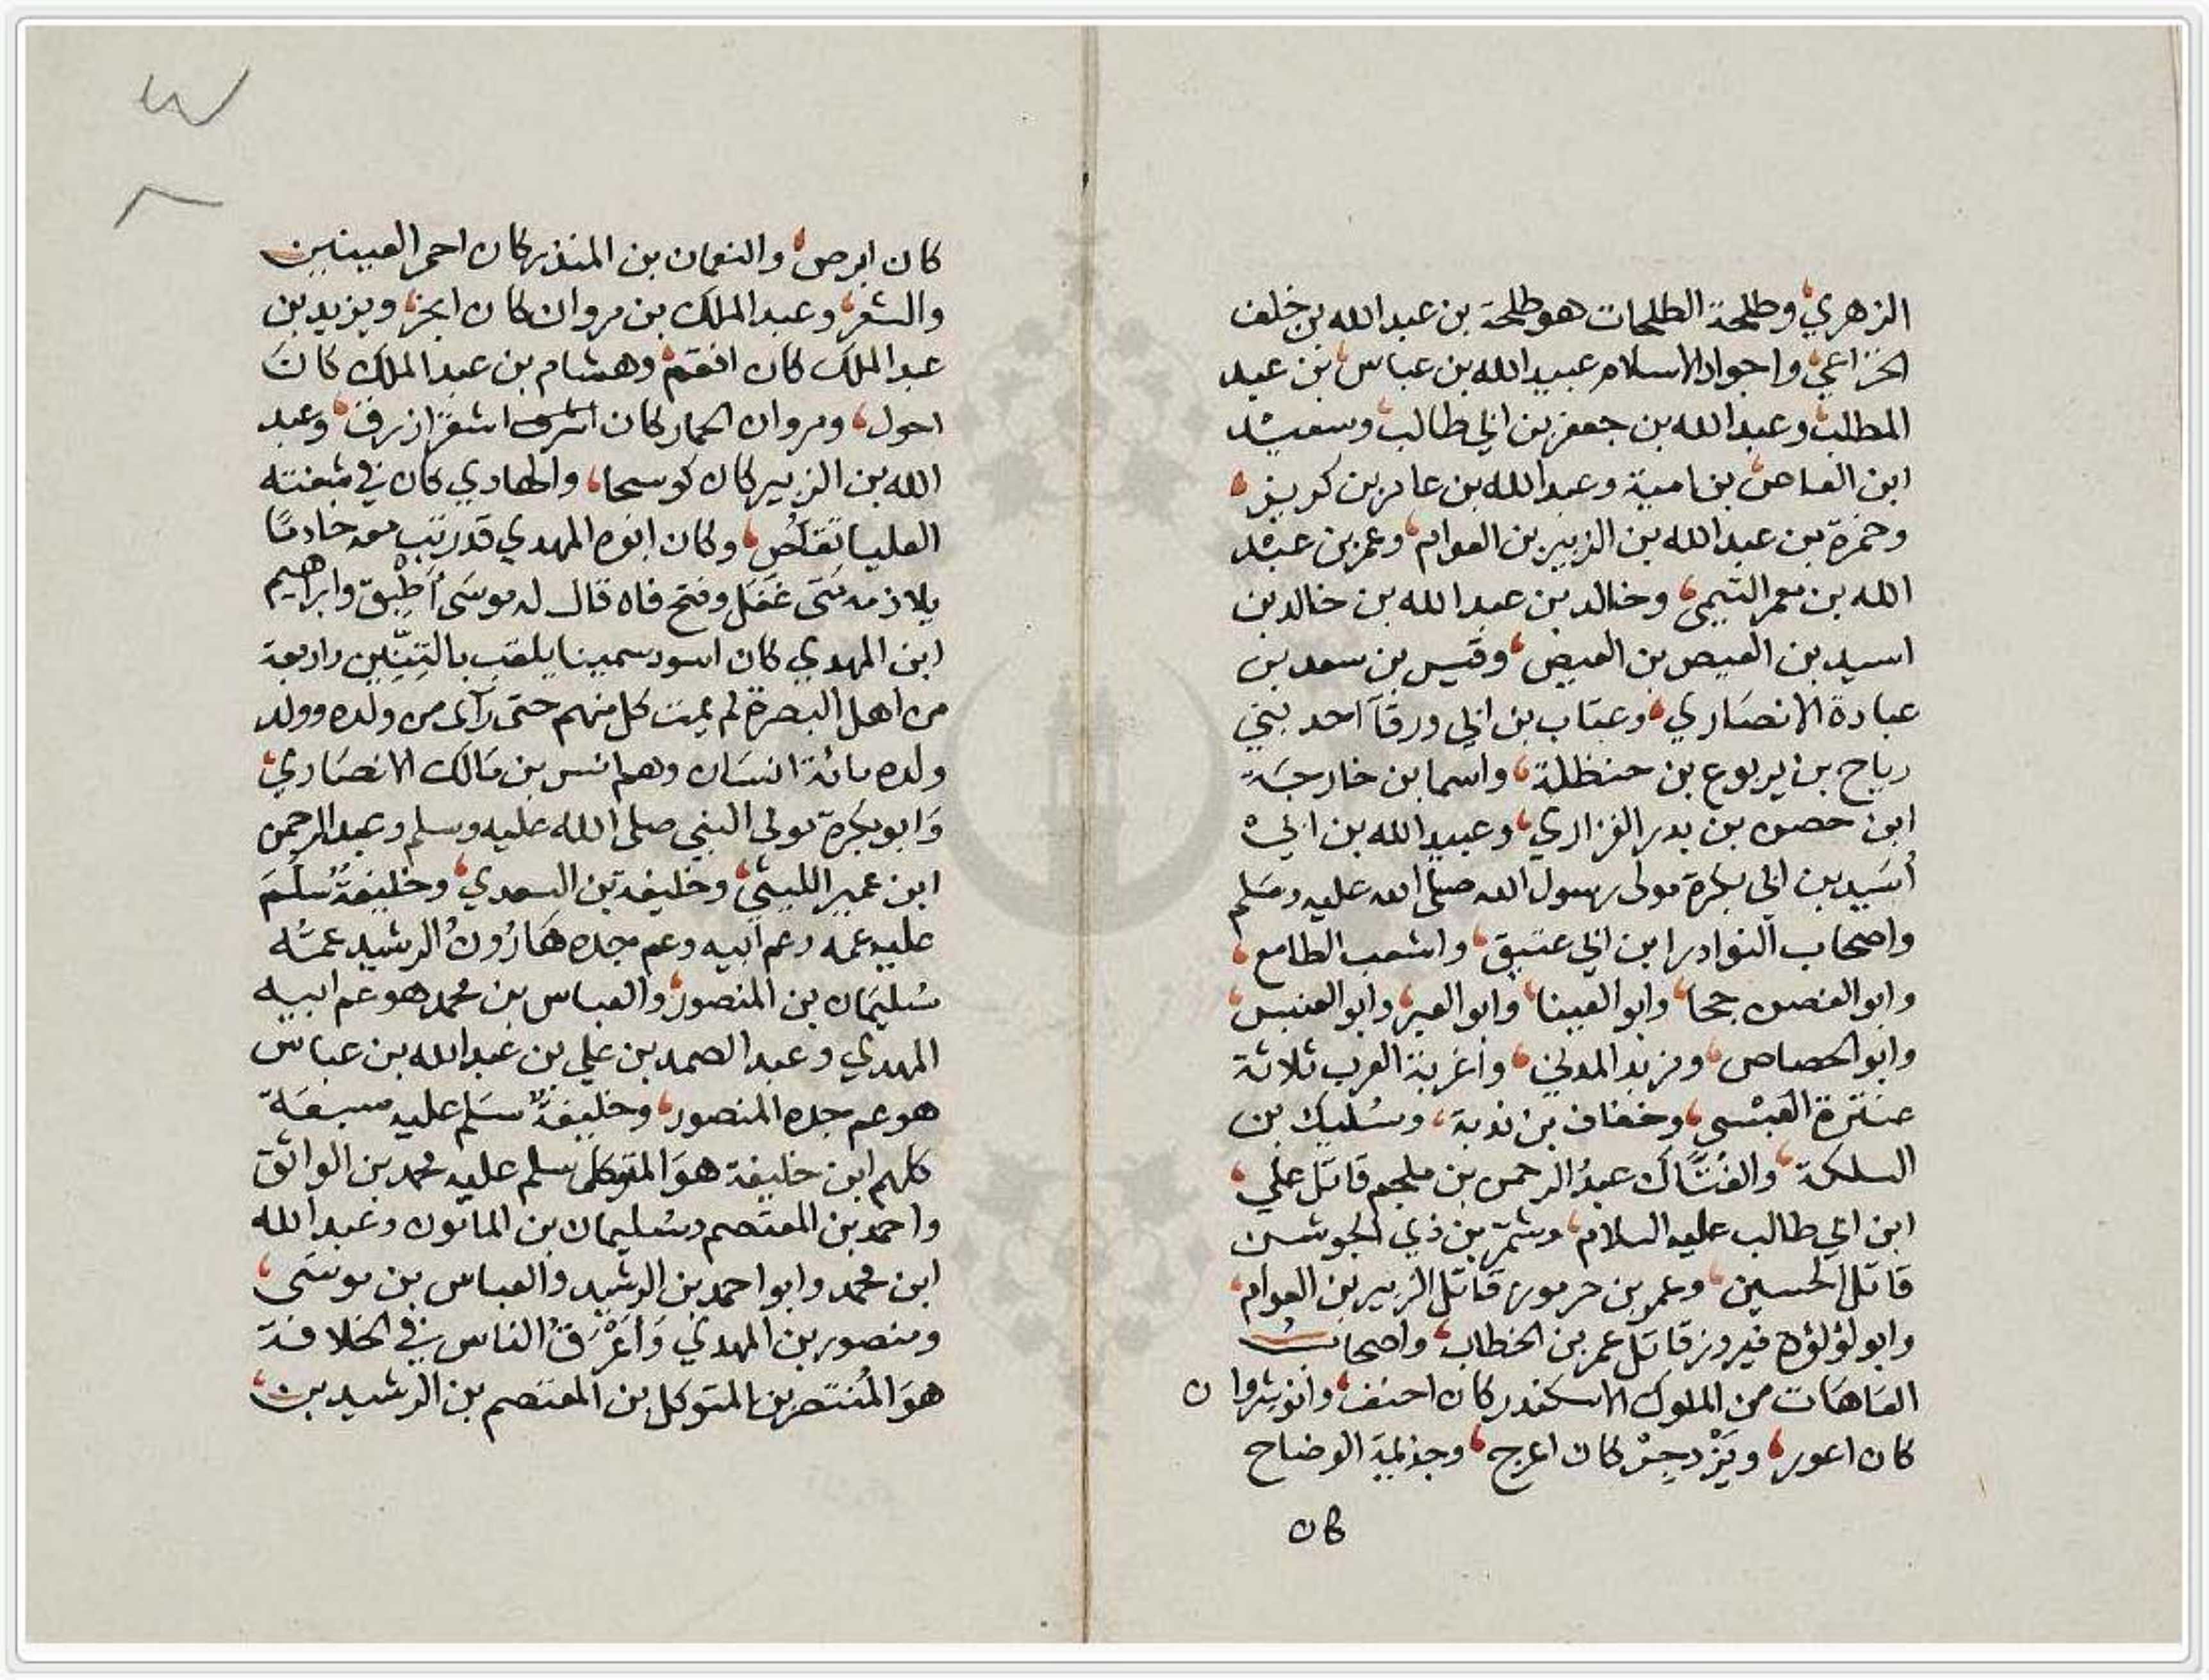 الزهري وطلحة الطلحات هو طلحة بن عبد الله بن خلف
الخزاعي واجواد الاسلام عبيد الله بن عباس بن عبد
المطلب وعبد الله بن جعفر بن ابي طالب وسعيد
ابن العاص بن امية وعبد الله بن عامر بن كريز
وحمزة بن عبد الله بن الزبير بن العوام وعمر بن عبيد
الله بن معمر التيمي وخالد بن عبد الله بن خالد بن
اسيد بن العيص بن العيص وقيس بن سعد بن
عبادة الانصاري وعتاب بن ابي ورقآ احد بني
رياح بن يربوع بن حنظلة واسما بن خارجة
ابن حصن بن بدر الفزاري وعبيد الله بن ابي
أسيد بن ابي بكرة مولى رسول الله صلى الله عليه وسلم
واصحاب النوادر ابن ابي عتيق واشعب الطامع
وابو الغصن جحا وابو العينا وابو العبر وابو العنبس
وابو الحصاص ومزبد المدني وأغربة العرب ثلاثة
عنترة العبسي وخفاف بن ندبة وسليك بن
السلكة والفتاك عبد الرحمن بن ملجم قاتل علي
ابن ابي طالب عليه السلام وشمر بن ذي الجوشن
قاتل الحسين وعمر بن جرموز قاتل الزبير بن العوام
وابو لؤلؤه فيروز قاتل عمر بن الخطاب واصحاب
العاهات من الملوك الاسكندر كان احنف وانوشروا ن
كان اعور ويزدجر كان اعرج وجذيمة الوضاح
كان
٣
٨
كان ابرص والنعمان بن المنذر كان احمر العينين
والشعر وعبد الملك بن مروان كان ابخر ويزيد بن
عبد الملك كان افقم وهشام بن عبد الملك كان
احول ومروان الحمار كان اشقر ازرق وعبد
الله بن الزبير كان كوسجا والهادي كان في شفته
العليا تقلص وكان ابوه المهدي قد رتب معه خادما
يلازمه متى غفل وفتح فاه قال له موسى أطبق وابراهيم
ابن المهدي كان اسود سمينا يلقب بالتنين واربعة
من اهل البصرة لم يمت كل منهم حتى رآى من ولده وولد
ولده مائة انسان وهم انس بن مالك الانصاري
وابو بكرة مولى النبي صلى الله عليه وسلم وعبد الرحمن
ابن عمير الليثي وخليفة بن السعدي وخليفة سلم
عليه عمه وعم ابيه وعم جده هارون الرشيد عمه
سليمان بن المنصور والعباس بن محمد هو عم ابيه
المهدي وعبد الصمد بن علي بن عبد الله بن عباس
هو عم جده المنصور وخليفة سلم عليه سبعة
كلهم ابن خليفة هو المتوكل سلم عليه محمد بن الواثق
واحمد بن المعتصم وسليمان بن المامون وعبد الله
ابن محمد وابو احمد بن الرشيد والعباس بن موسى
ومنصور بن المهدي وأعرق الناس في الخلافة
هو المنتصر بن المتوكل بن المعتصم بن الرشيد بن